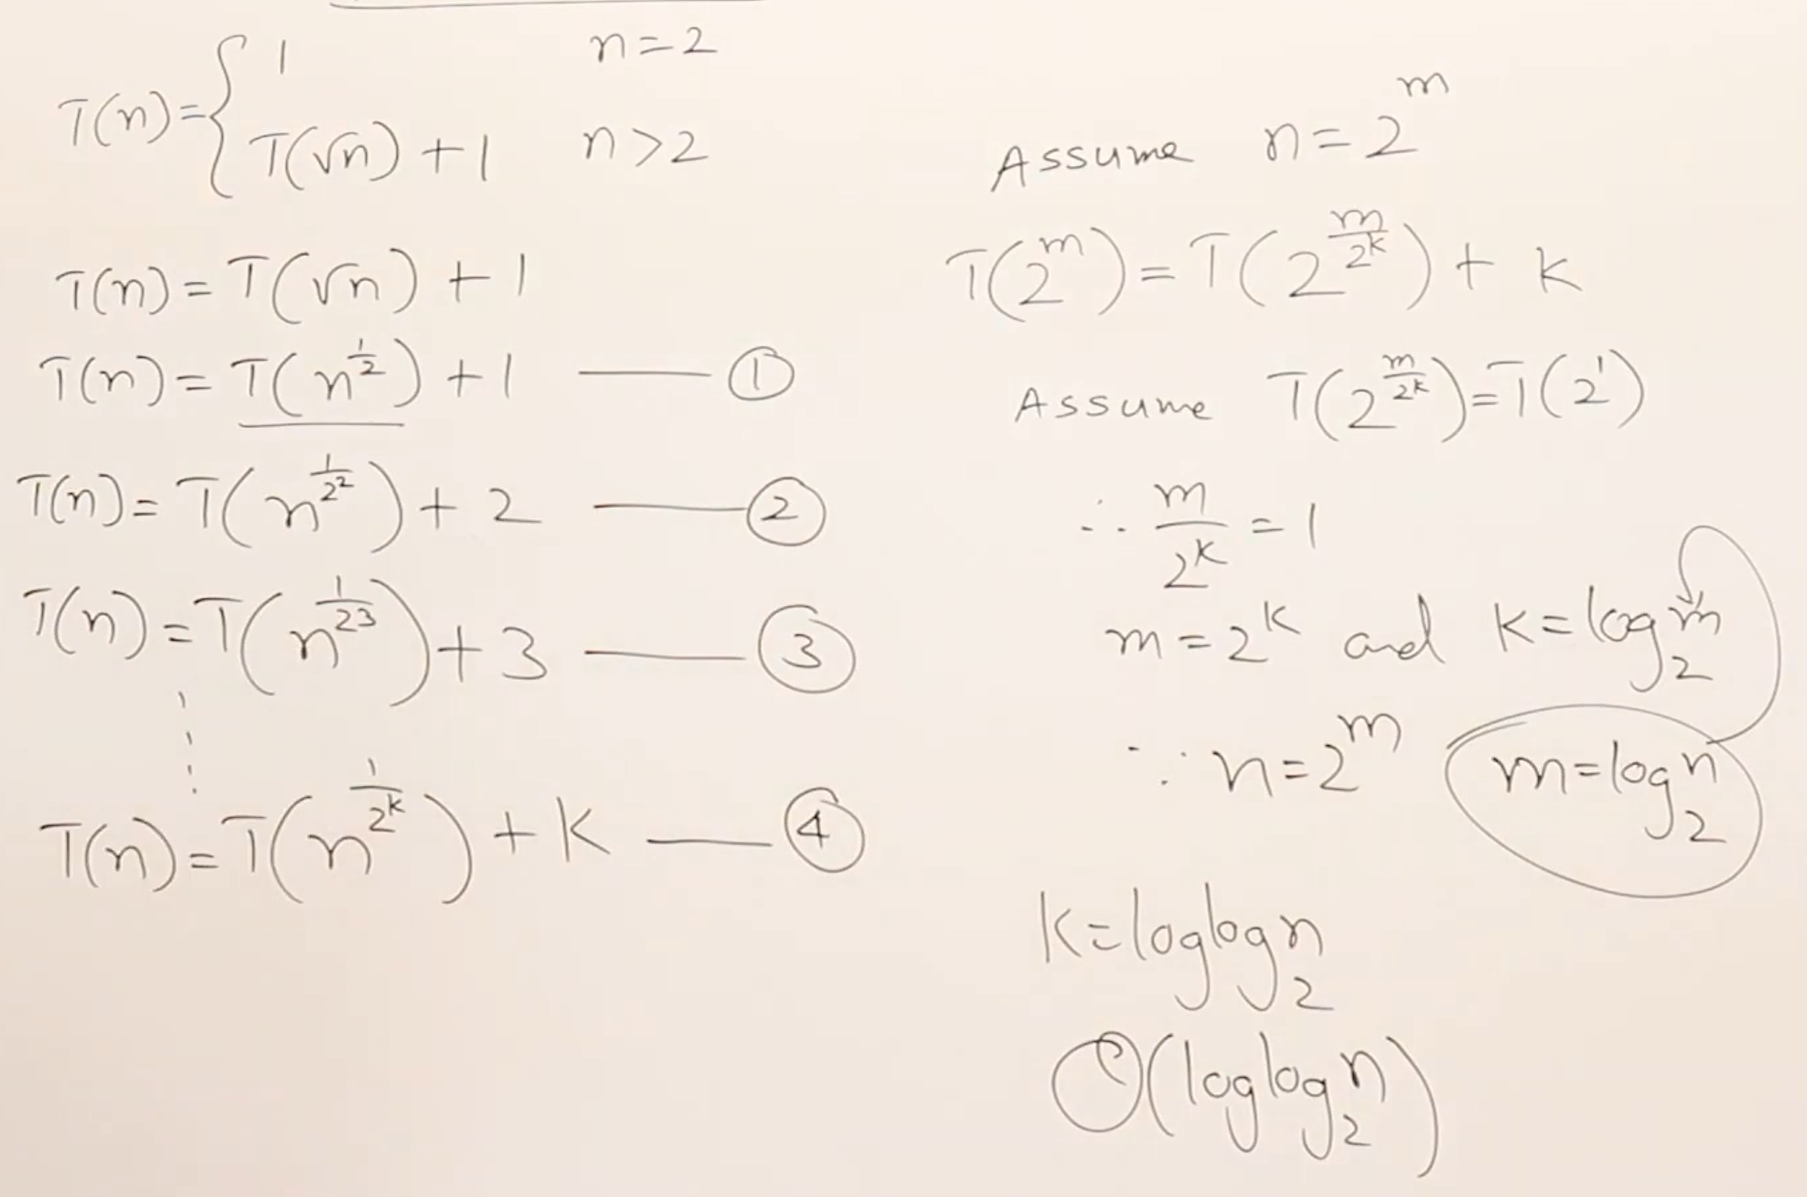 T(n) = { 1 n=2
T(√n) + 1 n>2
T(n) = T(√n) + 1
T(n) = T(n^(1/2)) + 1 —— ①
T(n) = T(n^(1/2²)) + 2 —— ②
T(n) = T(n^(1/2³)) + 3 —— ③
T(n) = T(n^(1/2^k)) + k —— ④
Assume n = 2^m
T(2^m) = T(2^(m/2^k)) + k
Assume T(2^(m/2^k)) = T(2¹)
∴ m/2^k = 1
m = 2^k and k = log₂m
∵ n = 2^m m = log₂n
k = loglog₂n
Θ(loglog₂n)